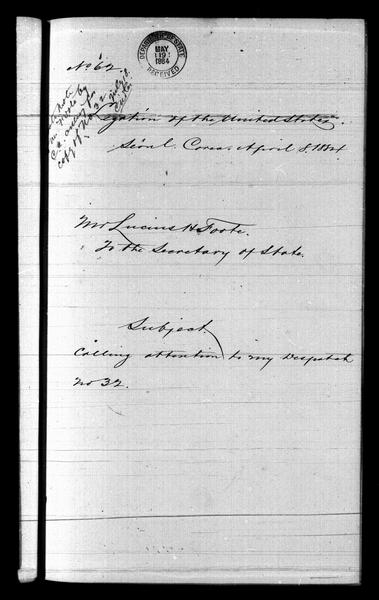 No 62.
DEPARTMENT OF STATE
MAY
19
1884
RECEIVED
Legation of the United States.
Séoul, Corea, April 8, 1884
Mr Lucius H Foote.
To the Secretary of State.
Subject.
Calling attention to my Despatch
No 32.